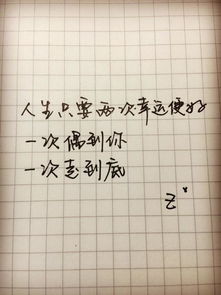 人生只要两次幸运便好
一次遇到你
一次走到底
Z